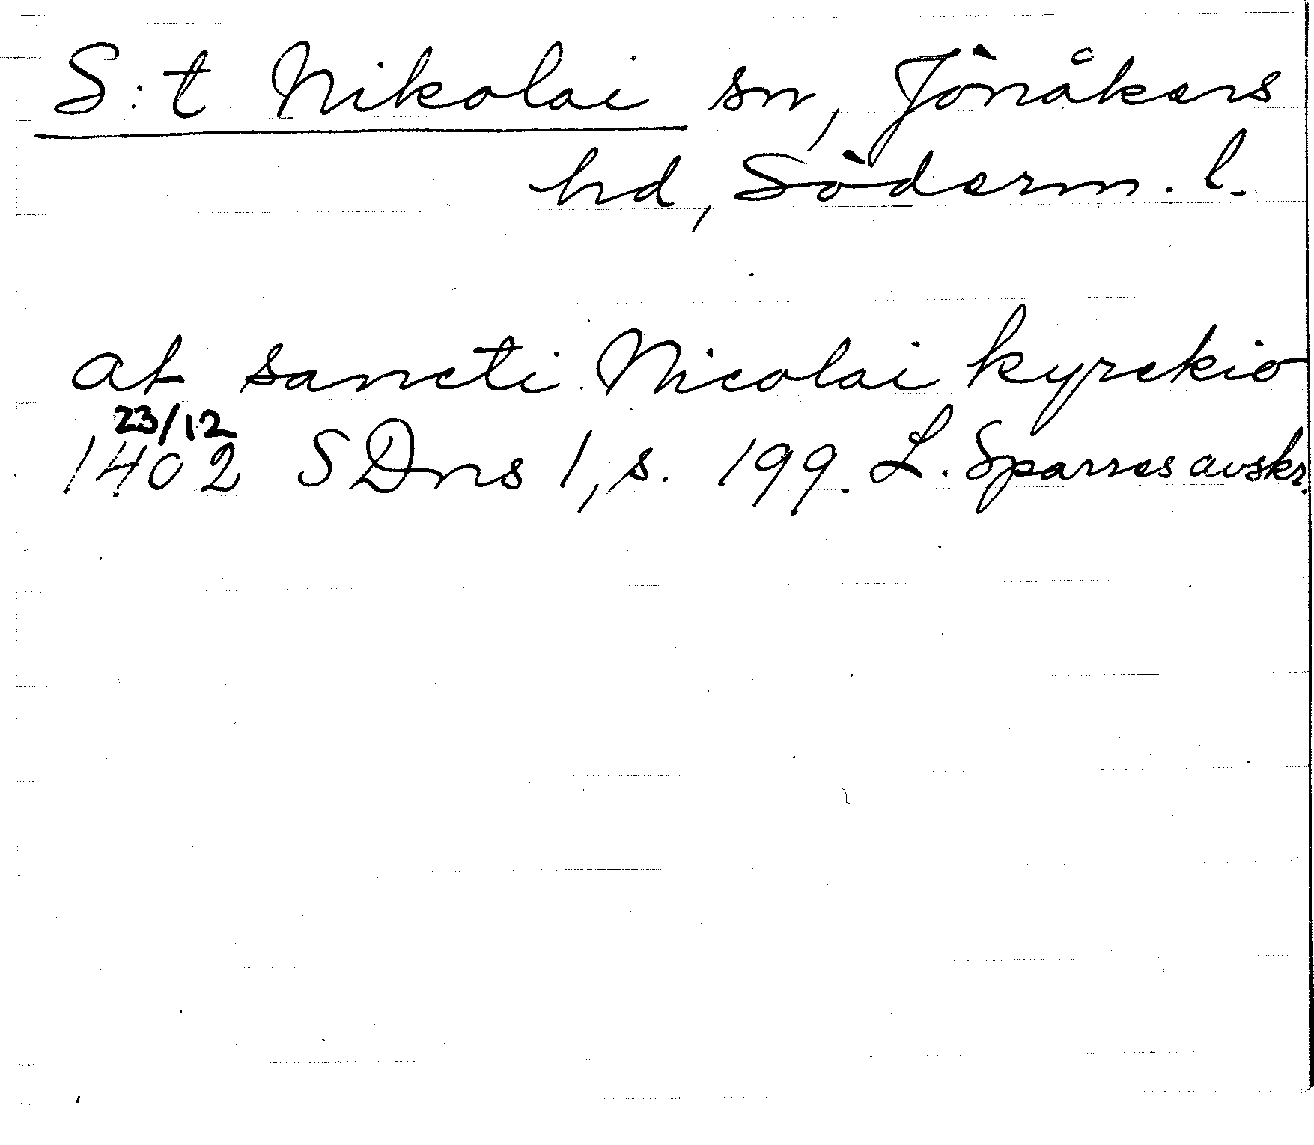 S:t Nikolai sn, Jönåkers
hd, Söderm. l.
at sancti Nicolai kyrekio
23/12
1402 SDns 1, s. 199. L. Sparres avskr.